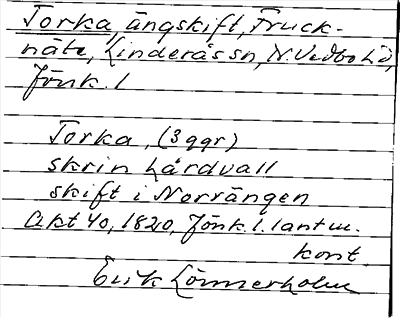 Torka, ängskift, Fruck-
näte, Linderås sn, N. Vedbo hd,
Jönk. l
Torka, (3 ggr)
skrin hårdvall
skift i Norrängen
Akt 40, 1820, Jönk. l. lantm.
kont.
Erik Lönnerholm